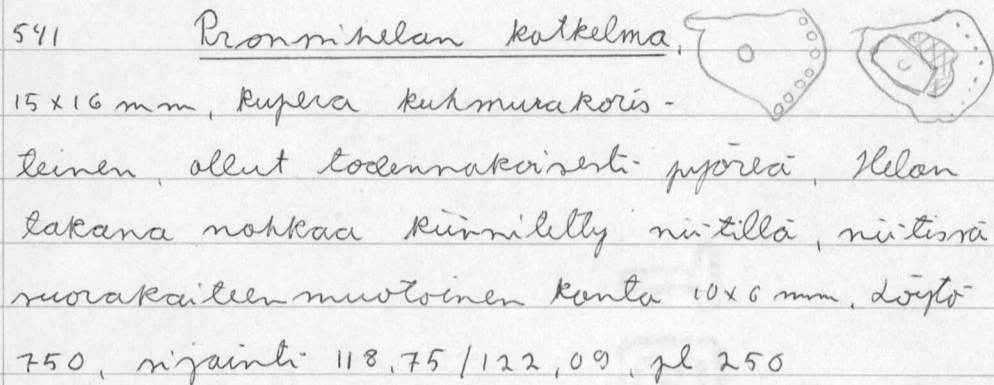 541 Pronssihelan katkelma,
15 x 16 mm, kupera kuhmurakoris-
teinen, ollut todennäköisesti pyöreä, Helan
takana nahkaa kiinnitetty niitillä, niitissä
suorakaiteenmuotoinen kanta 10x6 mm, Löytö
750, sijainti 118,75/122,09, pl 250